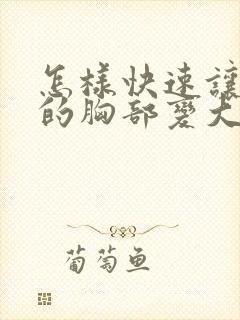 怎樣快速讓
的胸部變大
葡萄鱼